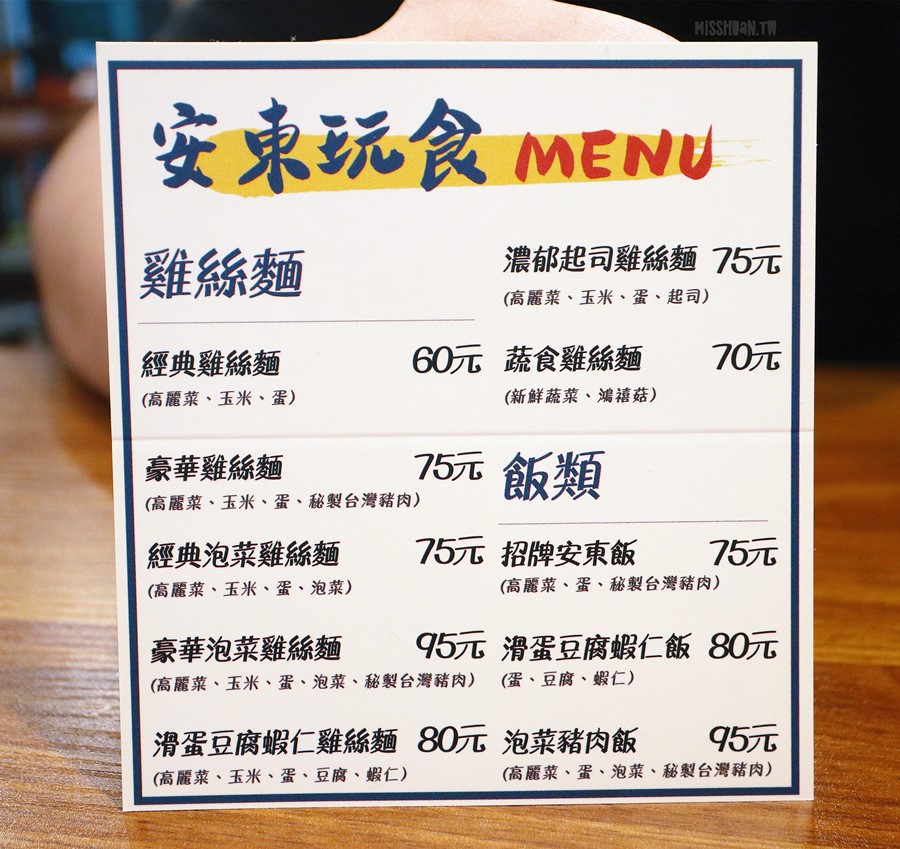 MISSHUAN.TW
安東玩食 MENU
雞絲麵
經典雞絲麵 60元
(高麗菜、玉米、蛋)
豪華雞絲麵 75元
(高麗菜、玉米、蛋、秘製台灣豬肉)
經典泡菜雞絲麵 75元
(高麗菜、玉米、蛋、泡菜)
豪華泡菜雞絲麵 95元
(高麗菜、玉米、蛋、泡菜、秘製台灣豬肉)
滑蛋豆腐蝦仁雞絲麵 80元
(高麗菜、玉米、蛋、豆腐、蝦仁)
濃郁起司雞絲麵 75元
(高麗菜、玉米、蛋、起司)
蔬食雞絲麵 70元
(新鮮蔬菜、鴻禧菇)
飯類
招牌安東飯 75元
(高麗菜、蛋、秘製台灣豬肉)
滑蛋豆腐蝦仁飯 80元
(蛋、豆腐、蝦仁)
泡菜豬肉飯 95元
(高麗菜、蛋、泡菜、秘製台灣豬肉)